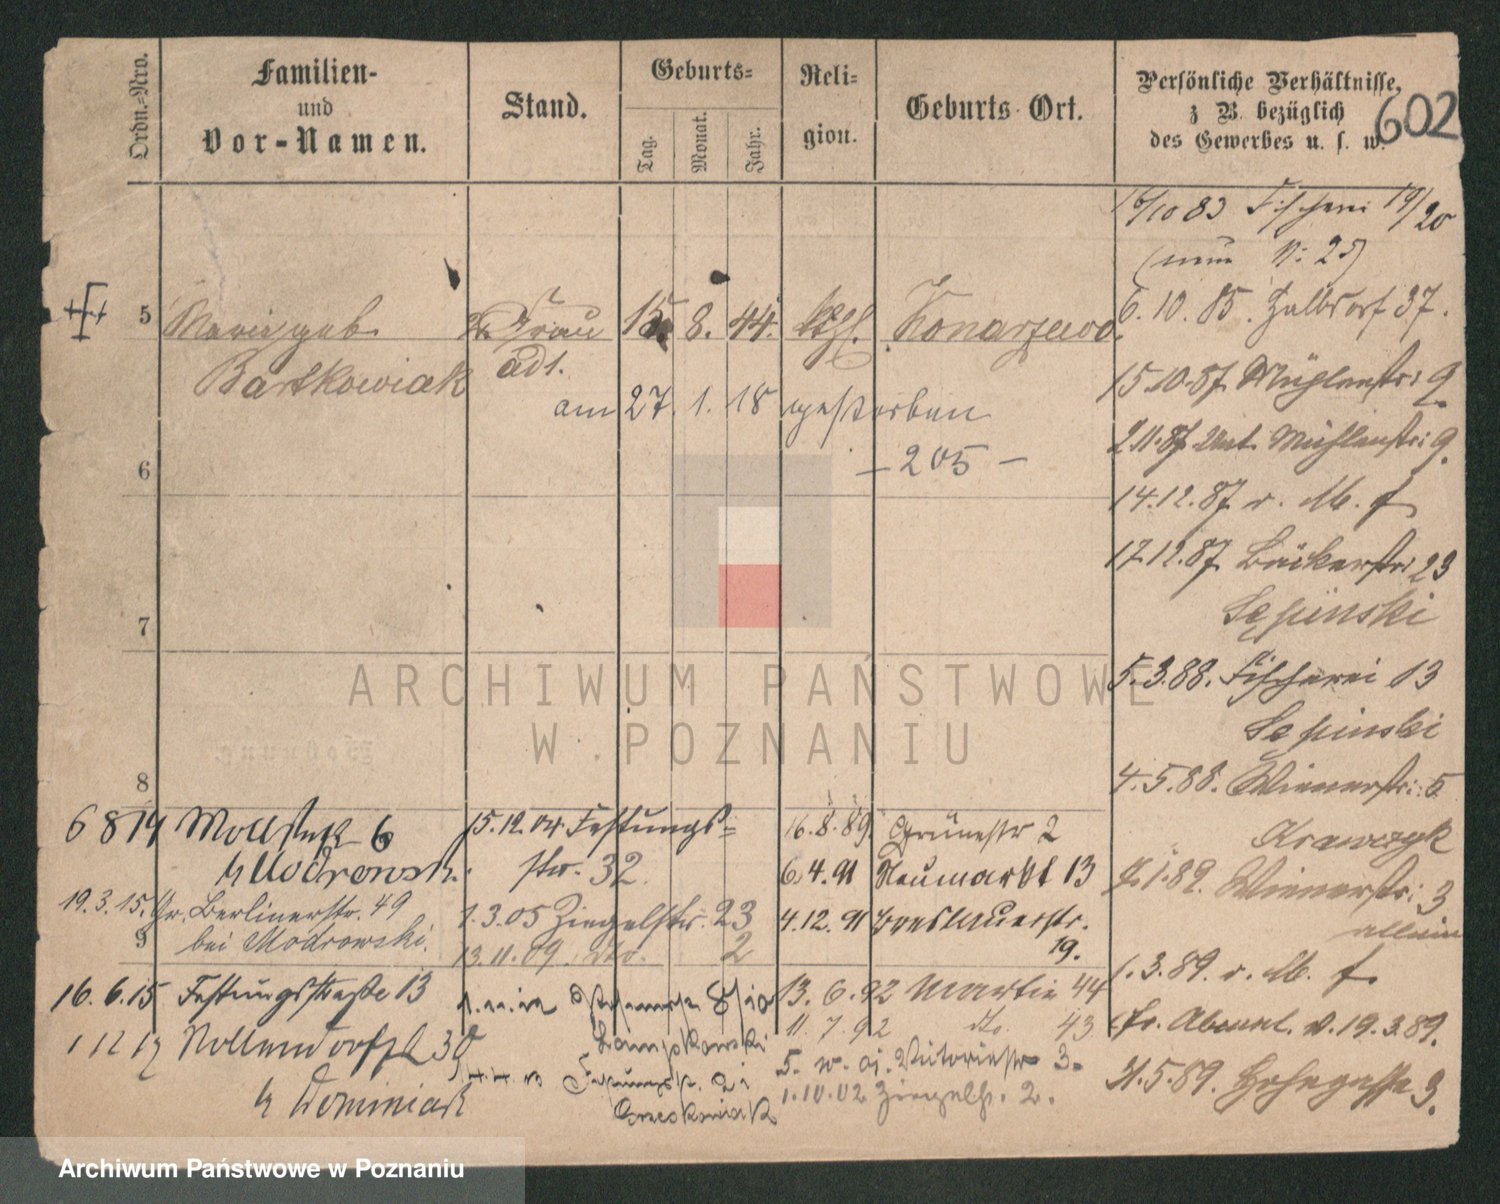 Ordn.=Nro.
Familien-
und
Vor-Namen.
Stand.
Geburts=
Tag.
Monat.
Jahr.
Reli-
gion.
Geburts-Ort.
Persönliche Verhältnisse,
z B. bezüglich
des Gewerbes u. s. w.
602
16/10 83 Fischerei 19/20
(neue N: 25)
6.10.85. Halbdorf 37.
15.10.87. Mühlenstr: 9.
2.11.87. Unt. Mühlenstr: 9.
14.12.87 v. M. f
17.12.87. Bäckerstr: 23
Sępinski
5.3.88. Fischerei 13
Sępinski
4.5.88. Wienerstr: 5
Krawczyk
1.89. Wienerstr: 3
allein
1.3.89. v. M. f.
19.3.89.
5.89. Hohegasse 3.
5 Marie geb. Frau 15. 8. 44. kth. Konarzewo.
Bartkowiak
am 27. 1. 18 gestorben
- 205 -
6
7
8
9
6 8 14 6
Modrowski.
19.3.15. Gr. Berlinerstr. 49
bei Modrowski.
16.6.15 Festungsstraße 13
1 12 17 Nollendorfpl 30
Dominiak
15.12.04. Festungs=
str. 32.
1.3.05 Ziegelstr. 23
13.11.09. dto. 2
8/10
Grzeskowiak
16.8.89. Grünestr 2
6.4.91 Neumarkt 13
4.12.91 Breslauerstr.
19.
13.6.92 Martin 44
11.7.92 dto. 43
Victoriastr 3.
1.10.02 Ziegelstr. 2.
ARCHIWUM PAŃSTWOWE
W POZNANIU
Archiwum Państwowe w Poznaniu